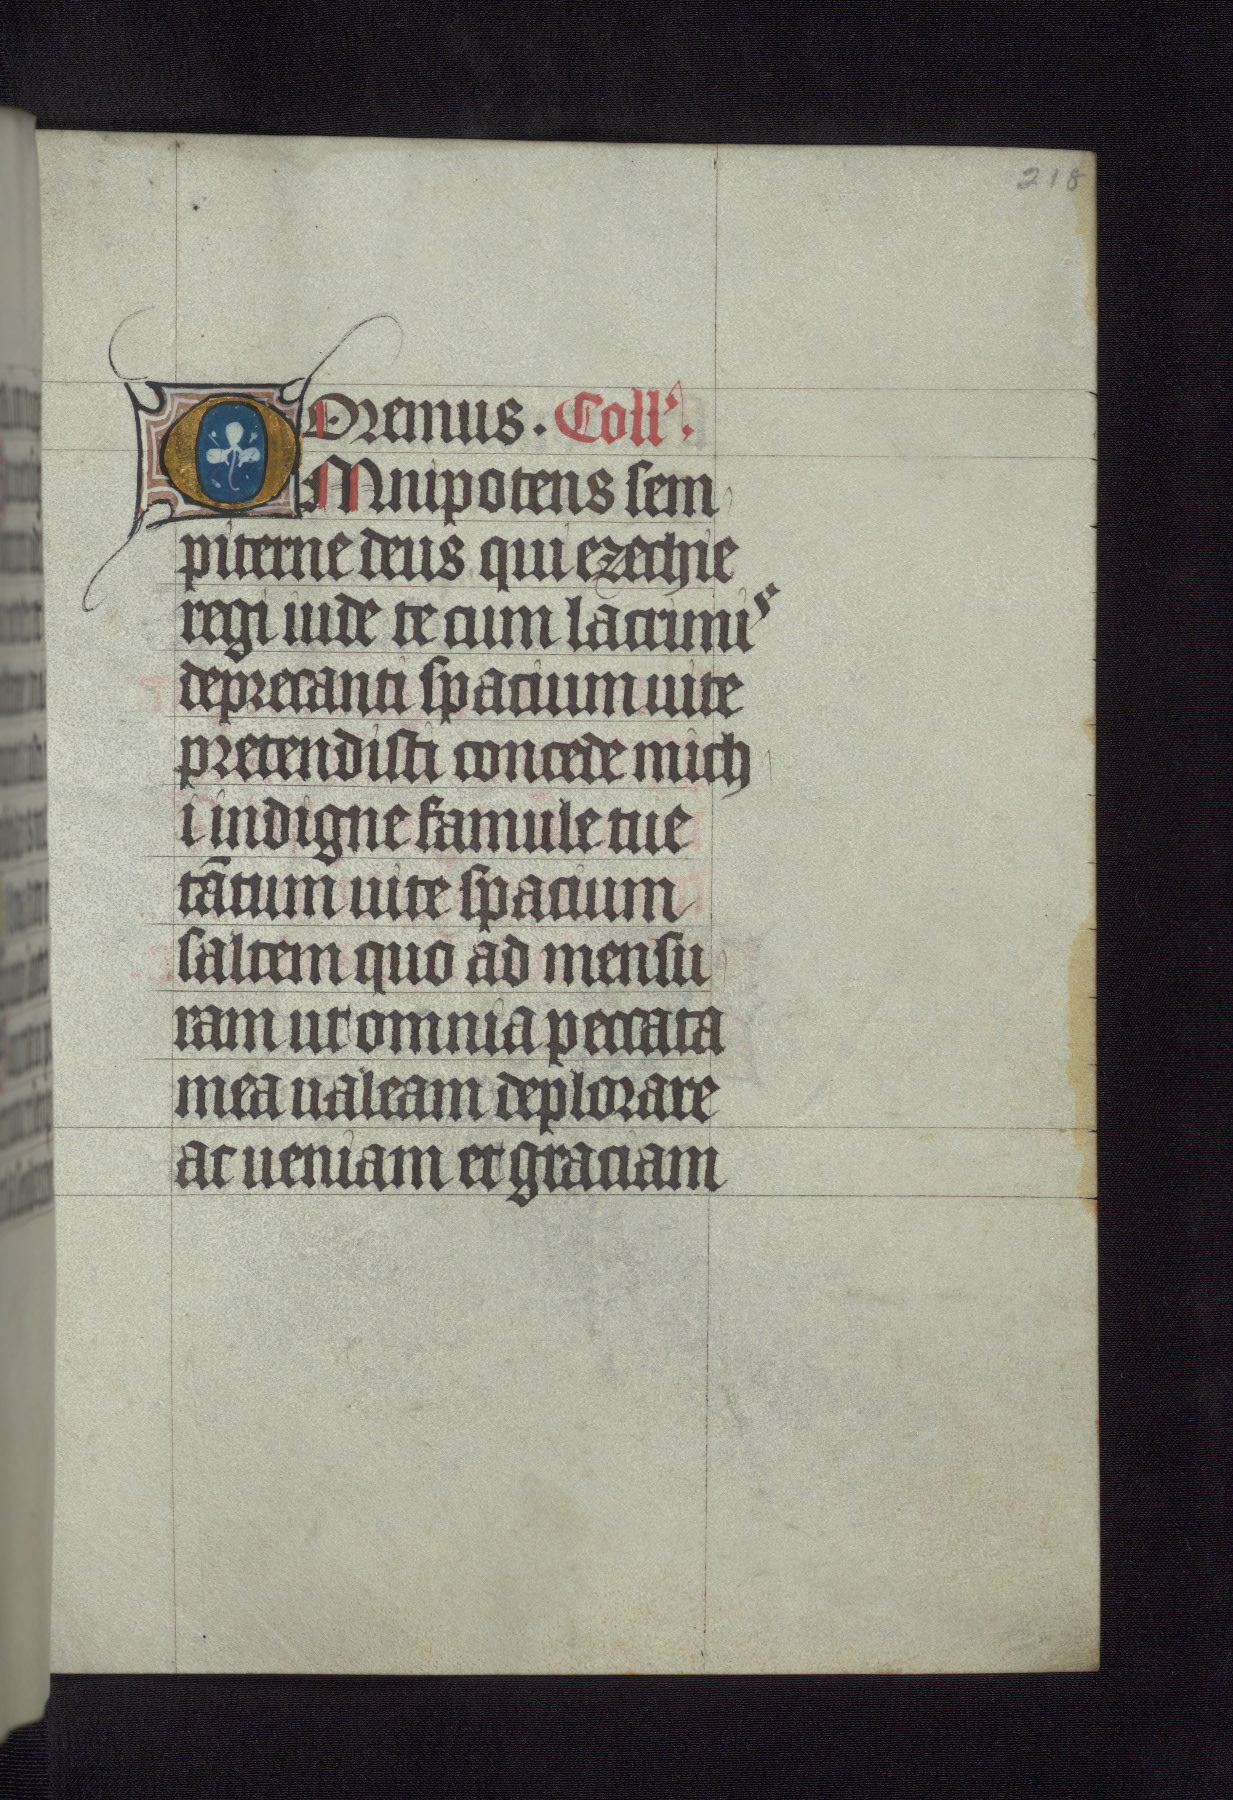 218
Oremus. Coll'.
OMnipotens sem
piterne deus qui ezechie
regi iude te cum lacrimis
deprecanti spacium uite
pretendisti concede mich
i indigne famule tue
tātum uite spacium
saltem quo ad mensu
ram ut omnia peccata
mea ualeam deplorare
ac ueniam et graciam